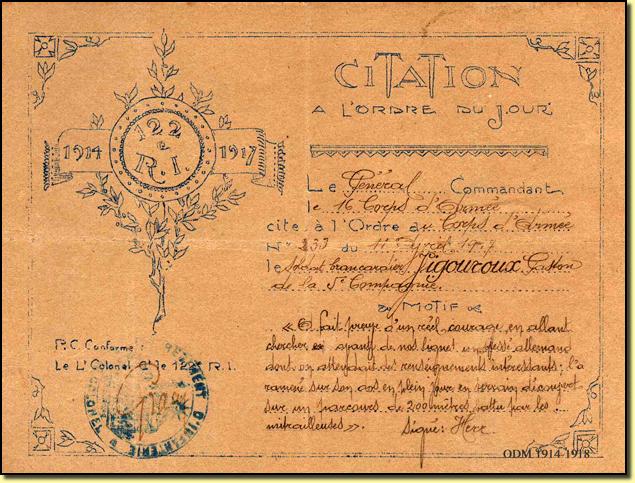 122
e
R.I.
1914
1917
P.C. Conforme :
Le Lt Colonel Ct le 122 R.I.
RÉGIMENT D'INFANTERIE
COLONEL
CITATION
A L'ORDRE DU JOUR
Le Général Commandant
le 16 Corps d'Armée
cite à l'Ordre au Corps d'Armée
N° 233 du 11 Avril 1917
le Soldat brancardier Vigouroux Gaston
de la 5e Compagnie
MOTIF
« A fait preuve d'un réel courage en allant
chercher en avant de nos lignes un blessé allemand
dont on attendait des renseignements intéressants ; l'a
ramené sur son dos en plein jour en terrain découvert
sur un parcours de 200 mètres battu par les
mitrailleuses ». Signé : Herr
ODM 1914-1918